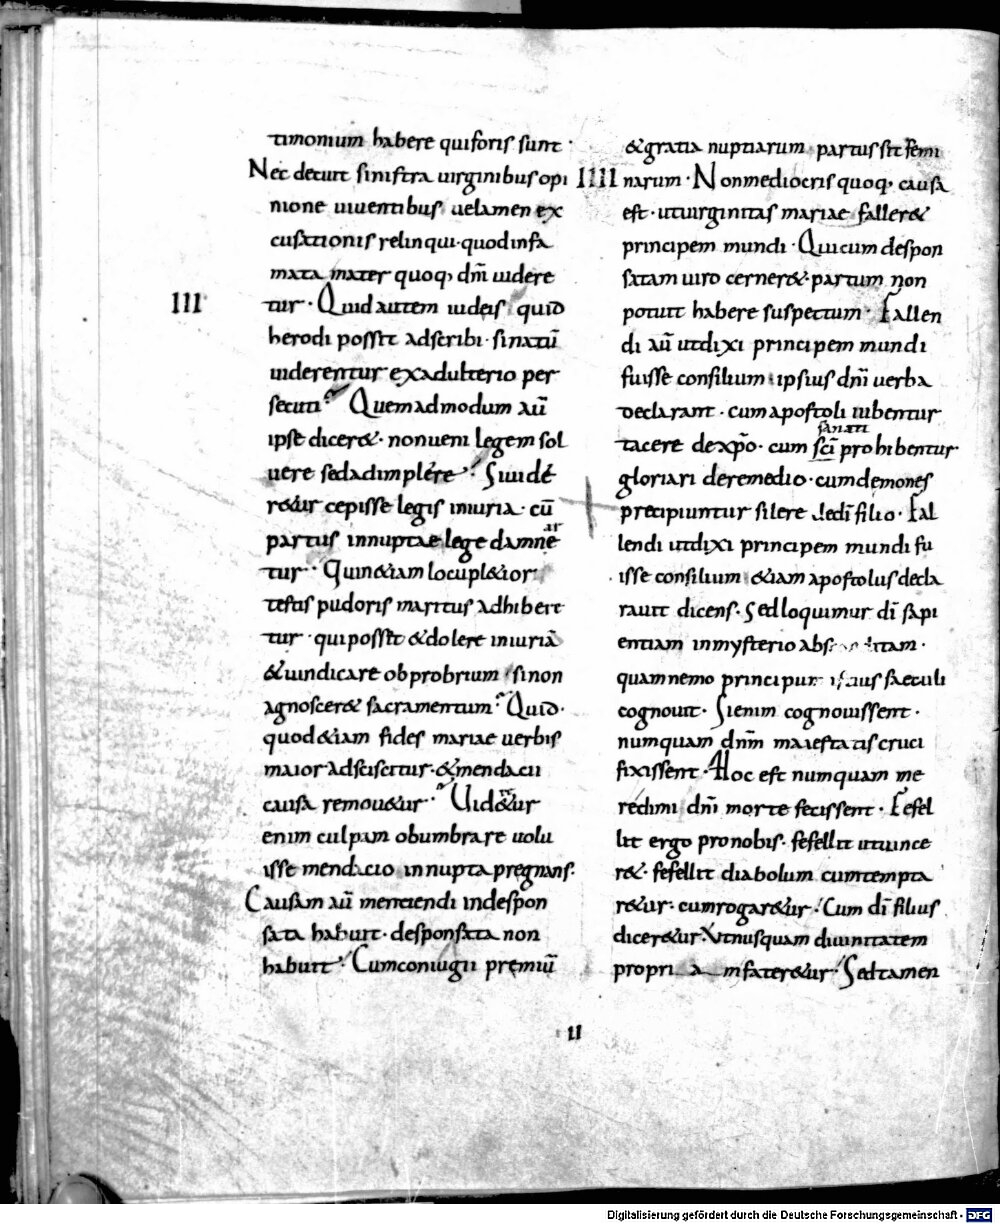 timonium habere qui foris sunt ·
Nec decuit sinistra uirginibus opi
nione uiuentibus uelamen ex
cusationis relinqui · quod infa
mata mater quoq; dn̄i uidere
III
tur · Quid autem iudeis quid
herodi possit adscribi · si natū
uiderentur ex adulterio per
secuti? Quemadmodum aū
ipse diceret · non ueni legem sol
uere sed adimplere? Si uide
retur cepisse legis iniuria · cū
partus innuptae lege damne
ar
tur · Quin etiam locupletior
testis pudoris maritus adhibe
tur · qui posset et dolere iniuriā
et uindicare obprobrium si non
agnosceret sacramentum? Quid ·
quod etiam fides mariae uerbis
maior adsciscitur · et mendacii
causa remouetur? Uidetur
enim culpam obumbrare uolu
isse mendacio innupta pregnans ·
Causam aū mentiendi indespon
sata habuit · desponsata non
habuit · Cum coniugii premiū
et gratia nuptiarum partus sit femi
IIII
narum · Non mediocris quoq; causa
est · ut uirginitas mariae falleret
principem mundi · Qui cum despon
satam uiro cerneret · partum non
potuit habere suspectum · Fallen
di aū ut dixi principem mundi
fuisse consilium ipsius dn̄i uerba
declarant · cum apostoli iubentur
sanati
tacere de xp̄o · cum sc̄i prohibentur
gloriari de remedio · cum demones
precipiuntur silere de dī filio · Fal
lendi ut dixi principem mundi fu
isse consilium etiam apostolus decla
rauit dicens · Sed loquimur dī sapi
entiam in mysterio
quam nemo principum saeculi
cognouit · Si enim cognouissent ·
numquam dn̄m maiestatis cruci
fixissent · Hoc est numquam me
redimi dn̄i morte fecissent · Fefel
lit ergo pro nobis · fefellit ut uince
ret · fefellit diabolum cum tempta
retur · cum rogaretur · Cum dī filius
diceretur · Ut nusquam diuinitatem
propriam fateretur · Sed tamen
II
Digitalisierung gefördert durch die Deutsche Forschungsgemeinschaft - DFG